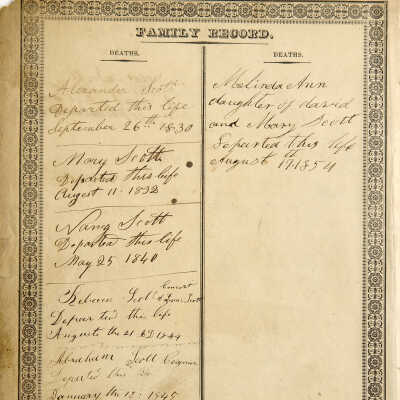 FAMILY RECORD.
DEATHS.
Alexander Scott
Departed this life
September 26th 1830
Mary Scott
Departed this life
August 11. 1832
Nancy Scott
Departed this life
May 25 1840
Rebecca Scott Consort
of
Departed this life
Augusts the 21 AD 1844
Abraham Scott
Departed this life
January the 12. 1845
DEATHS.
Melinda Ann
daughter of david
and Mary Scott
Departed this life
August 17th 1854